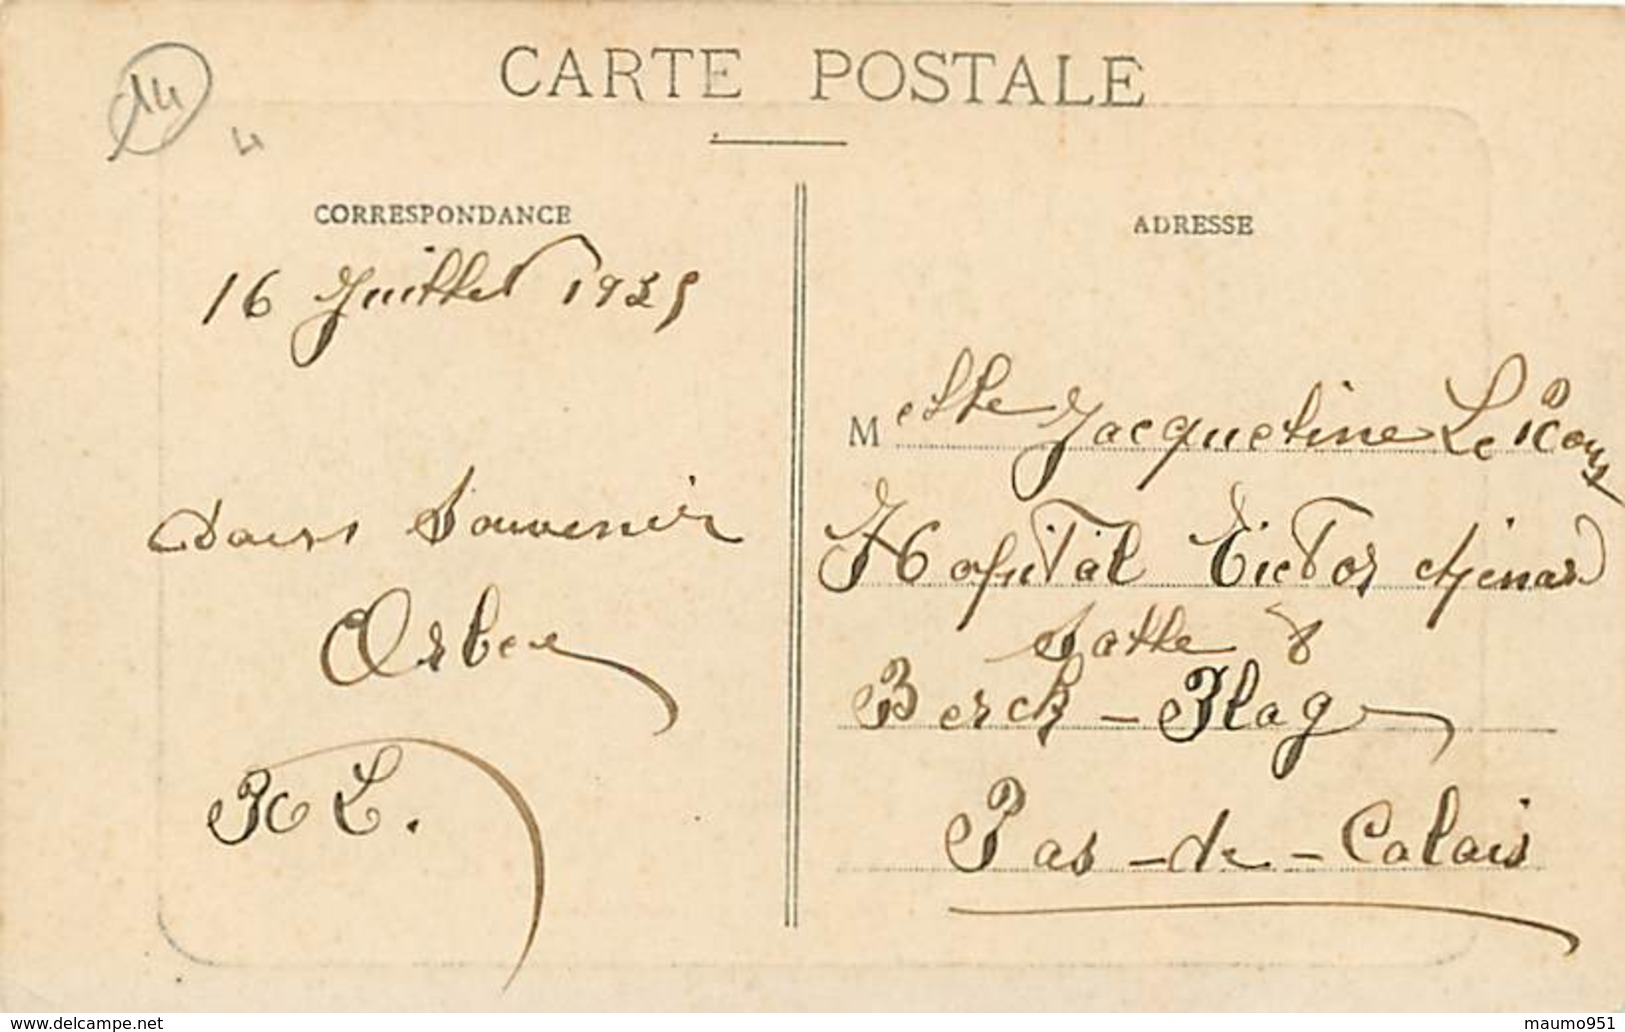 14
4
CARTE POSTALE
CORRESPONDANCE
16 Juillet 1935
Souvenir
H L.
ADRESSE
Melle Jacqueline Le
Hopital Victor Ménard
Salle 8
Berck - Plag
Pas-de-Calais
www.delcampe.net
maumo951